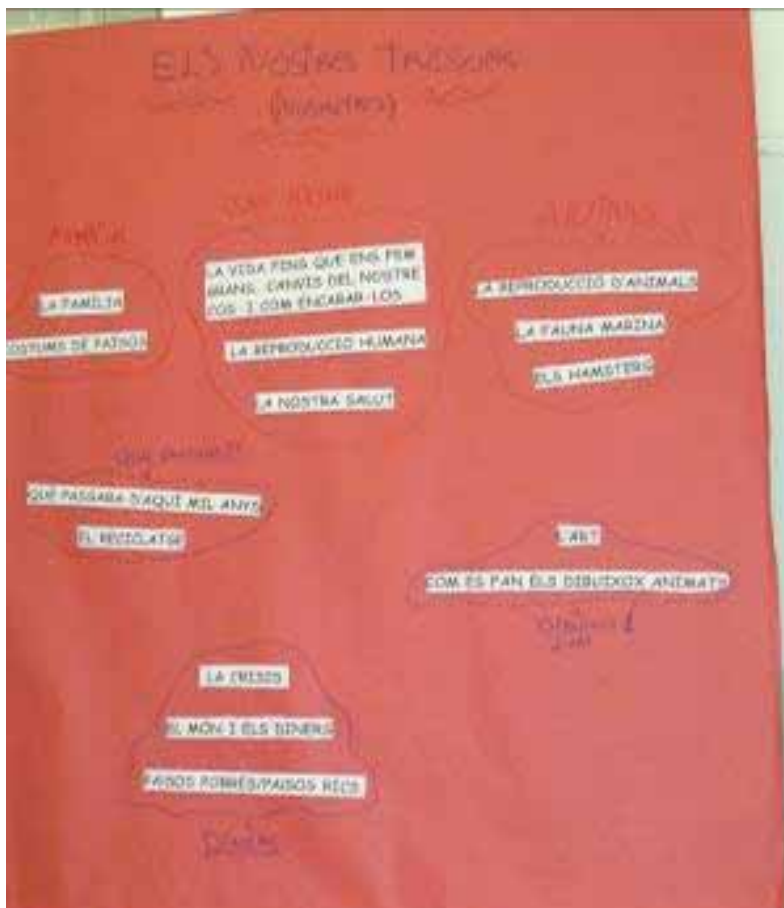 ELS NOSTRES TRESORS
LA FAMÍLIA
COSTUMS DE PAÏSOS
LA VIDA FINS QUE ENS FEM
GRANS. CANVIS DEL NOSTRE
COS I COM ENCARAR-LOS
LA REPRODUCCIÓ HUMANA
LA NOSTRA SALUT
ANIMALS
LA REPRODUCCIÓ D'ANIMALS
LA FAUNA MARINA
ELS HAMSTERS
QUÈ PASSARÀ D'AQUÍ MIL ANYS
EL RECICLATGE
L'ART
COM ES FAN ELS DIBUIXOX ANIMATS
LA CRISIS
EL MÓN I ELS DINERS
PAÏSOS POBRES/PAÏSOS RICS
DINERS